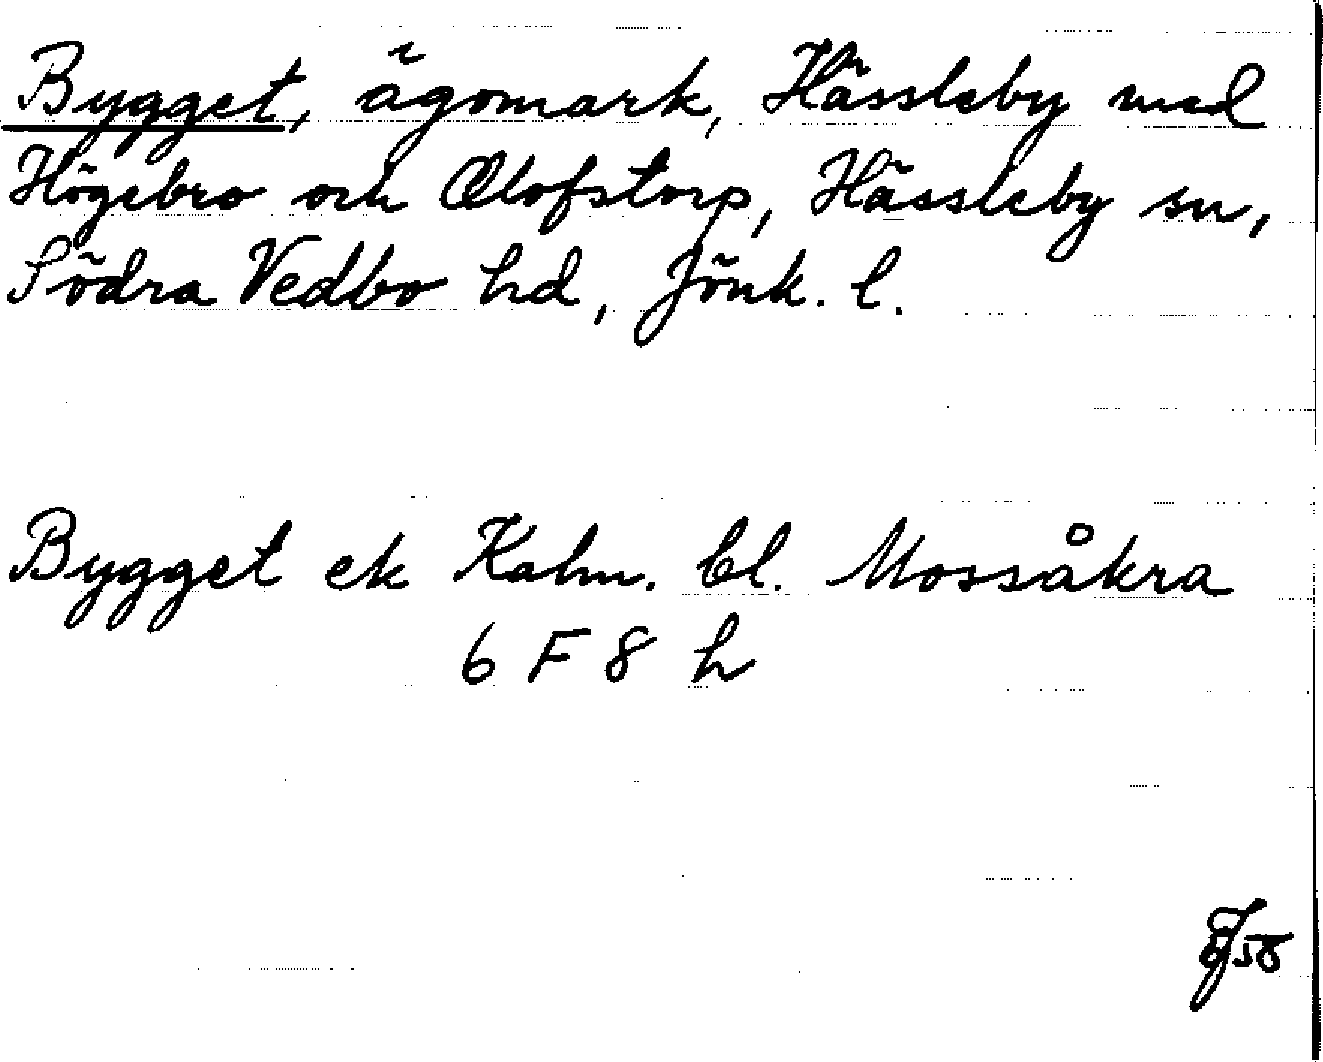 Bygget, ägomark, Hässleby med
Högebro och Olofstorp, Hässleby sn,
Södra Vedbo hd, Jönk. l.
Bygget ek Kalm. bl. Mossåkra
6 F 8 h
58